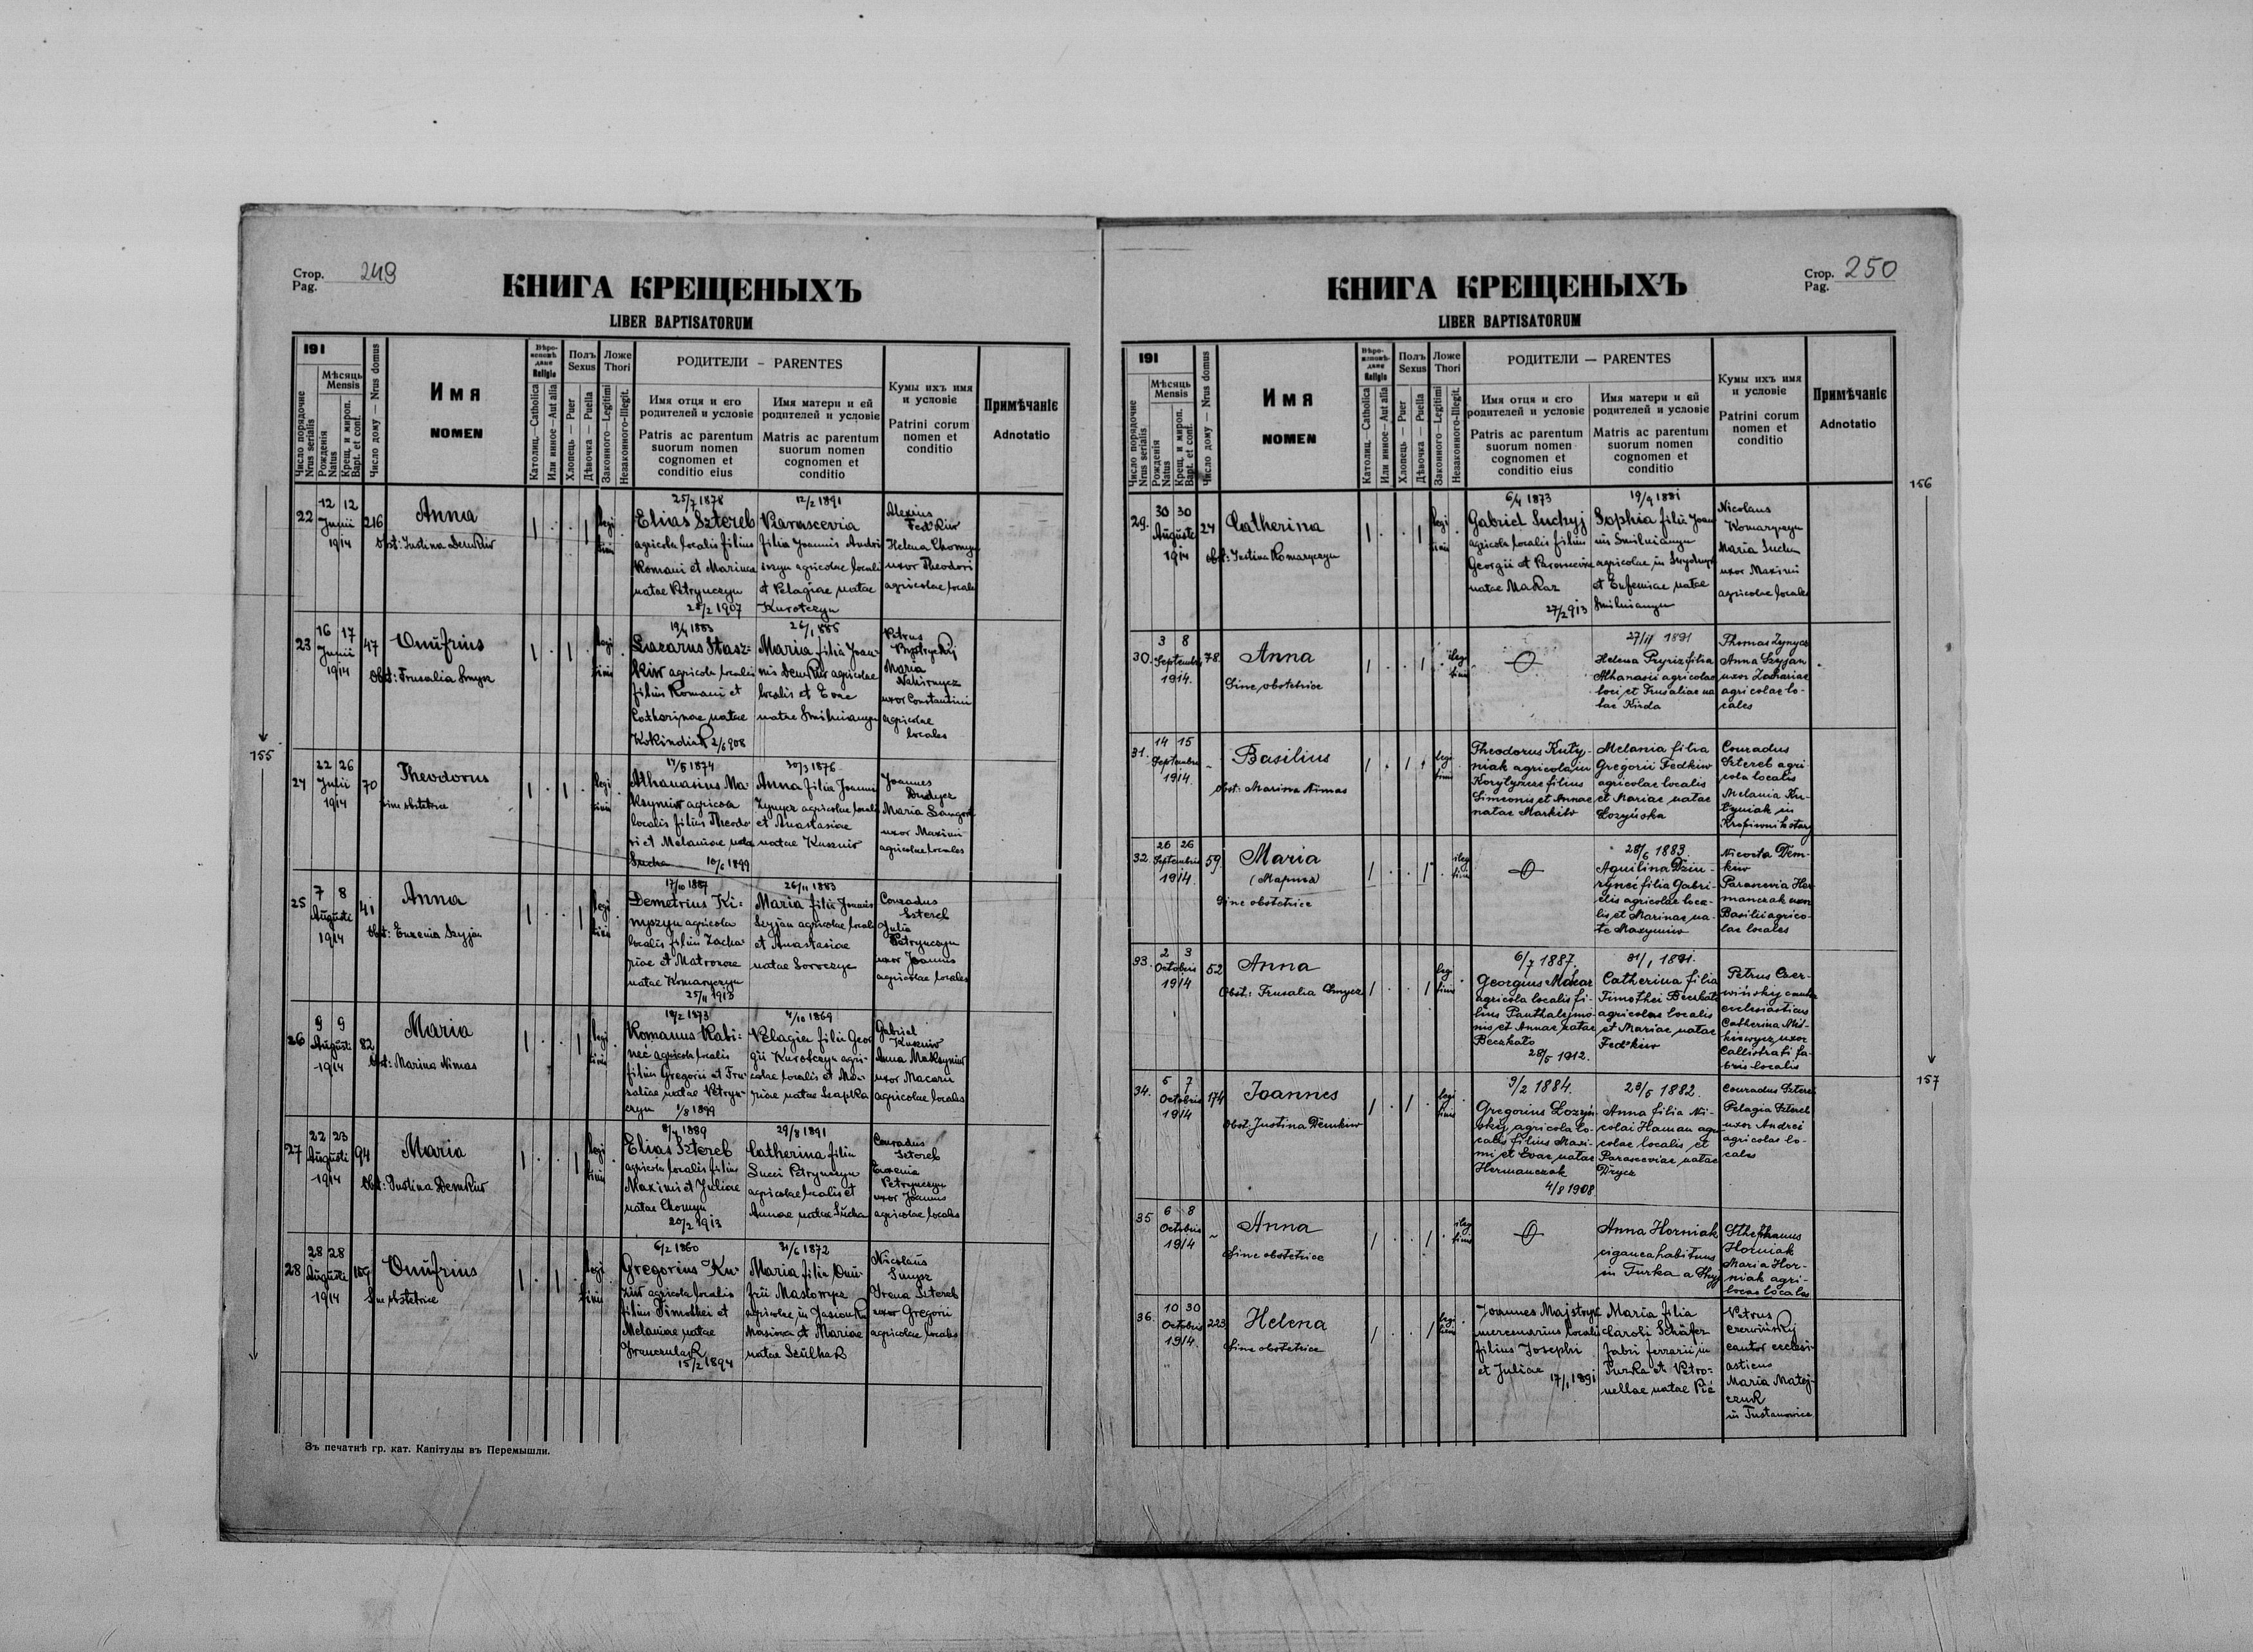 Стор.
Pag. 249
КНИГА КРЕЩЕНЫХЪ
LIBER BAPTISATORUM
191
Число порядочне
Nrus serialis
Мѣсяць
Mensis
Рожденія
Natus
Крещ. и мироп.
Bapt. et conf.
Число дому — Nrus domus
Имя
NOMEN
Religio
Католиц.—Catholica
Или инное—Aut alia
Полъ
Sexus
Хлопець — Puer
Дѣвочка — Puella
Ложе
Thori
Законного—Legitimi
Незаконного—Illegit.
РОДИТЕЛИ – PARENTES
Имя отця и его
родителей и условіе
Patris ac parentum
suorum nomen
cognomen et
conditio eius
Имя матери и ей
родителей и условіе
Matris ac parentum
suorum nomen
cognomen et
conditio
Кумы ихъ имя
и условіе
Patrini corum
nomen et
conditio
Примѣчаніє
Adnotatio
22
12 12
Junii
1914
216
Anna
Obst: Justina Demkiw
legi
timi
25/7 1878
Elias Sztereb
agricola localis filius
Romani et Marinae
natae Petrynczyn
28/2 1907
12/2 1891
Parascevia
filia Joannis Andrei
agricolae locali
et Pelagiae natae
Kurotczyn
Alexius
Fedkiw
Helena Chomyn
uxor Theodori
agricolae locales
23
16 17
Junii
1914
47
Onufrius
Obst: Frusalia Smysz
legi
timi
19/4 1883
Lazarus Stasz=
kiw agricola localis
filius Romani et
Catharinae natae
2/6 908
26/1 885
Maria filia Joan-
nis Demkiw agricolae
localis et Evae
natae Smilnianyn
Petrus
Bystryckyj
Maria
uxor Constantini
agricolae
locales
24
22 26
Julii
1914
70
Theodorus
sine obstetrice
legi
timi
17/5 1874
Athanasius Ma-
ksymiw agricola
localis filius Theodo-
ri et Melaniae nata
Sucha 10/6 1899
30/3 1876
Anna filia Joannis
Zynycz agricolae locali
et Anastasiae
natae Kuszniw
Joannes
Dudycz
Maria
uxor Maximi
agricolae locales
25
7 8
Augusti
1914
41
Anna
Obst: Euxenia Szyjan
legi
timi
17/10 1887
Demetrius Ki=
nyszyn agricola
localis filius Zacha-
riae et Matronae
natae Komaryczyn
25/11 1913
26/11 1883
Maria filia Joannis
Szyjan agricolae locali
et Anastasiae
natae
Conradus
Sztereb
Julia
Petrynczyn
uxor Joannis
agricolae locales
26
9 9
Augusti
1914
82
Maria
Obst: Marina Nimas
legi
timi
18/2 1873
Romanus Rabi=
neć agricola localis
filius Gregorii et Fru-
saliae natae Petryn-
czyn 1/8 1899
4/10 1869
Pelagia filia Geor
gii Kurotczyn agri-
colae localis et Ma-
riae natae Szapka
Gabriel
Kuszniw
Anna Maksymiw
uxor Macarii
agricolae locales
27
22 23
Augusti
1914
94
Maria
Obst: Justina Demkiw
legi
timi
8/4 1889
Elias Sztereb
agricola localis filius
Maximi et Juliae
natae Chomyn
20/2 1913
29/8 1891
Catherina filia
Lucci Petrynczyn
agricolae localis et
Annae natae Sucha
Conradus
Sztereb
Euxenia
Petrynczyn
uxor Joannis
agricolae locales
28
28 28
Augusti
1914
Onufrius
Sine obstetrice
legi
timi
6/2 1860
Gregorius Ku-
ziw agricola localis
filius Timothei et
Melaniae natae
15/2 1894
31/6 1872
Maria filia Onu-
frii
agricolae in Jasionka
Masiowa et Mariae
natae Sculhak
Nicolaus
Smysz
Irena Sztereb
uxor Gregorii
agricolae locales
155
Зъ печатнѣ гр. кат. Капітулы въ Перемышли.
Стор.
Pag. 250
КНИГА КРЕЩЕНЫХЪ
LIBER BAPTISATORUM
191
Число порядочне
Nrus serialis
Мѣсяць
Mensis
Рожденія
Natus
Крещ. и мироп.
Bapt. et conf.
Число дому — Nrus domus
Имя
NOMEN
Religio
Католиц.—Catholica
Или инное—Aut alia
Полъ
Sexus
Хлопець — Puer
Дѣвочка — Puella
Ложе
Thori
Законного—Legitimi
Незаконного-Illegit.
РОДИТЕЛИ — PARENTES
Имя отця и его
родителей и условіе
Patris ac parentum
suorum nomen
cognomen et
conditio eius
Имя матери и ей
родителей и условіе
Matris ac parentum
suorum nomen
cognomen et
conditio
Кумы ихъ имя
и условіе
Patrini corum
nomen et
conditio
Примѣчаніє
Adnotatio
156
29.
30 30
Auguste
1914
24
Catherina
Obst: Justina Komaryczyn
legi
timi
6/4 1873
Gabriel Suchyj
agricola localis filius
Georgii et Parasceviae
natae Makar
27/2 913
19/9 1881
Sophia filia Joan
nis Smilnianyn
agricolae in
et Eufemiae natae
Smilnianyn
Nicolaus
Komaryczyn
Maria Sucha
uxor Maximi
agricolae locales
30.
3 8
Septembris
1914.
78.
Anna
Sine obstetrice
illegi
timi
27/11 1891
Helena Pryriz filia
Athanasii agricolae
loci et Frusaliae na
tae Kirda
Thomas Zynycz
Anna Szyjan
uxor Zachariae
agricolae lo-
cales
31.
14 15
Septembris
1914.
Basilius
Obst: Marina Nimas
legi
timi
Theodorus Kuty-
niak agricola in
filius
Simeonis et Annae
natae Markiw
Melania filia
Gregorii Fedkiw
agricolae localis
et Mariae natae
Łozyńska
Conradus
Sztereb agri-
cola localis
Melania Ku-
tyniak in
Kropiwnik stary
32.
26 26
Septembris
1914.
59.
Maria
(Марина)
Sine obstetrice
illeg
timi
28/6 1883.
Aquilina Dziu-
ryneć filia Gabri-
elis agricolae loca-
lis et Marinae na-
te Maxymiw
Nicoeta Dem-
kiw
Parascevia Her
manczak uxor
Basilii agrico-
lae locales
33.
2 3
Octobris
1914
52
Anna
Obst: Frusalia Smycz
legi
timi
6/7 1887.
Georgius Makar
agricola localis fi-
lius Panthalejmo
nis et Annae natae
Beczkato
28/5 1912.
31/1 1891.
Catherina filia
Timothei Beczkato
agricolae localis
et Mariae natae
Fedkiw
Petrus Czer-
wińsky cantor
ecclesiasticus
Catherina
uxor
Callistrati fa-
bris localis
157
34.
5 7
Octobris
1914
174
Joannes
Obst: Justina Demkiw
legi
timi
9/2 1884.
Gregorius Łozyń-
sky agricola lo-
calis filius Maxi-
mi et Evae natae
Hermanczak
4/8 1908
28/5 1882.
Anna filia Ni-
colai Haman agri
colae localis et
Parasceviae natae
Drycz
Conradus Sztereb
Pelagia Sztereb
uxor Andrei
agricolae lo-
cales
35
6 8
Octobris
1914
Anna
Sine obstetrice
illeg
timi
Anna Horniak
ciganca habitans
in Turka a Stryj
Sthephanus
Horniak
Maria Hor-
niak agri-
colae locales
36.
10 30
Octobris
1914.
223
Helena
Sine obstetrice
legi
timi
Joannes Majstryk
mercenarius localis
filius Josephi
et Juliae
17/1 1891
Maria filia
Caroli Schäfer
fabri ferrarii in
Turka et Petro-
nellae natae Pić
Petrus
Czerwiński
cantor ecclesi-
asticus
Maria Matej-
czuk
in Tustanowice